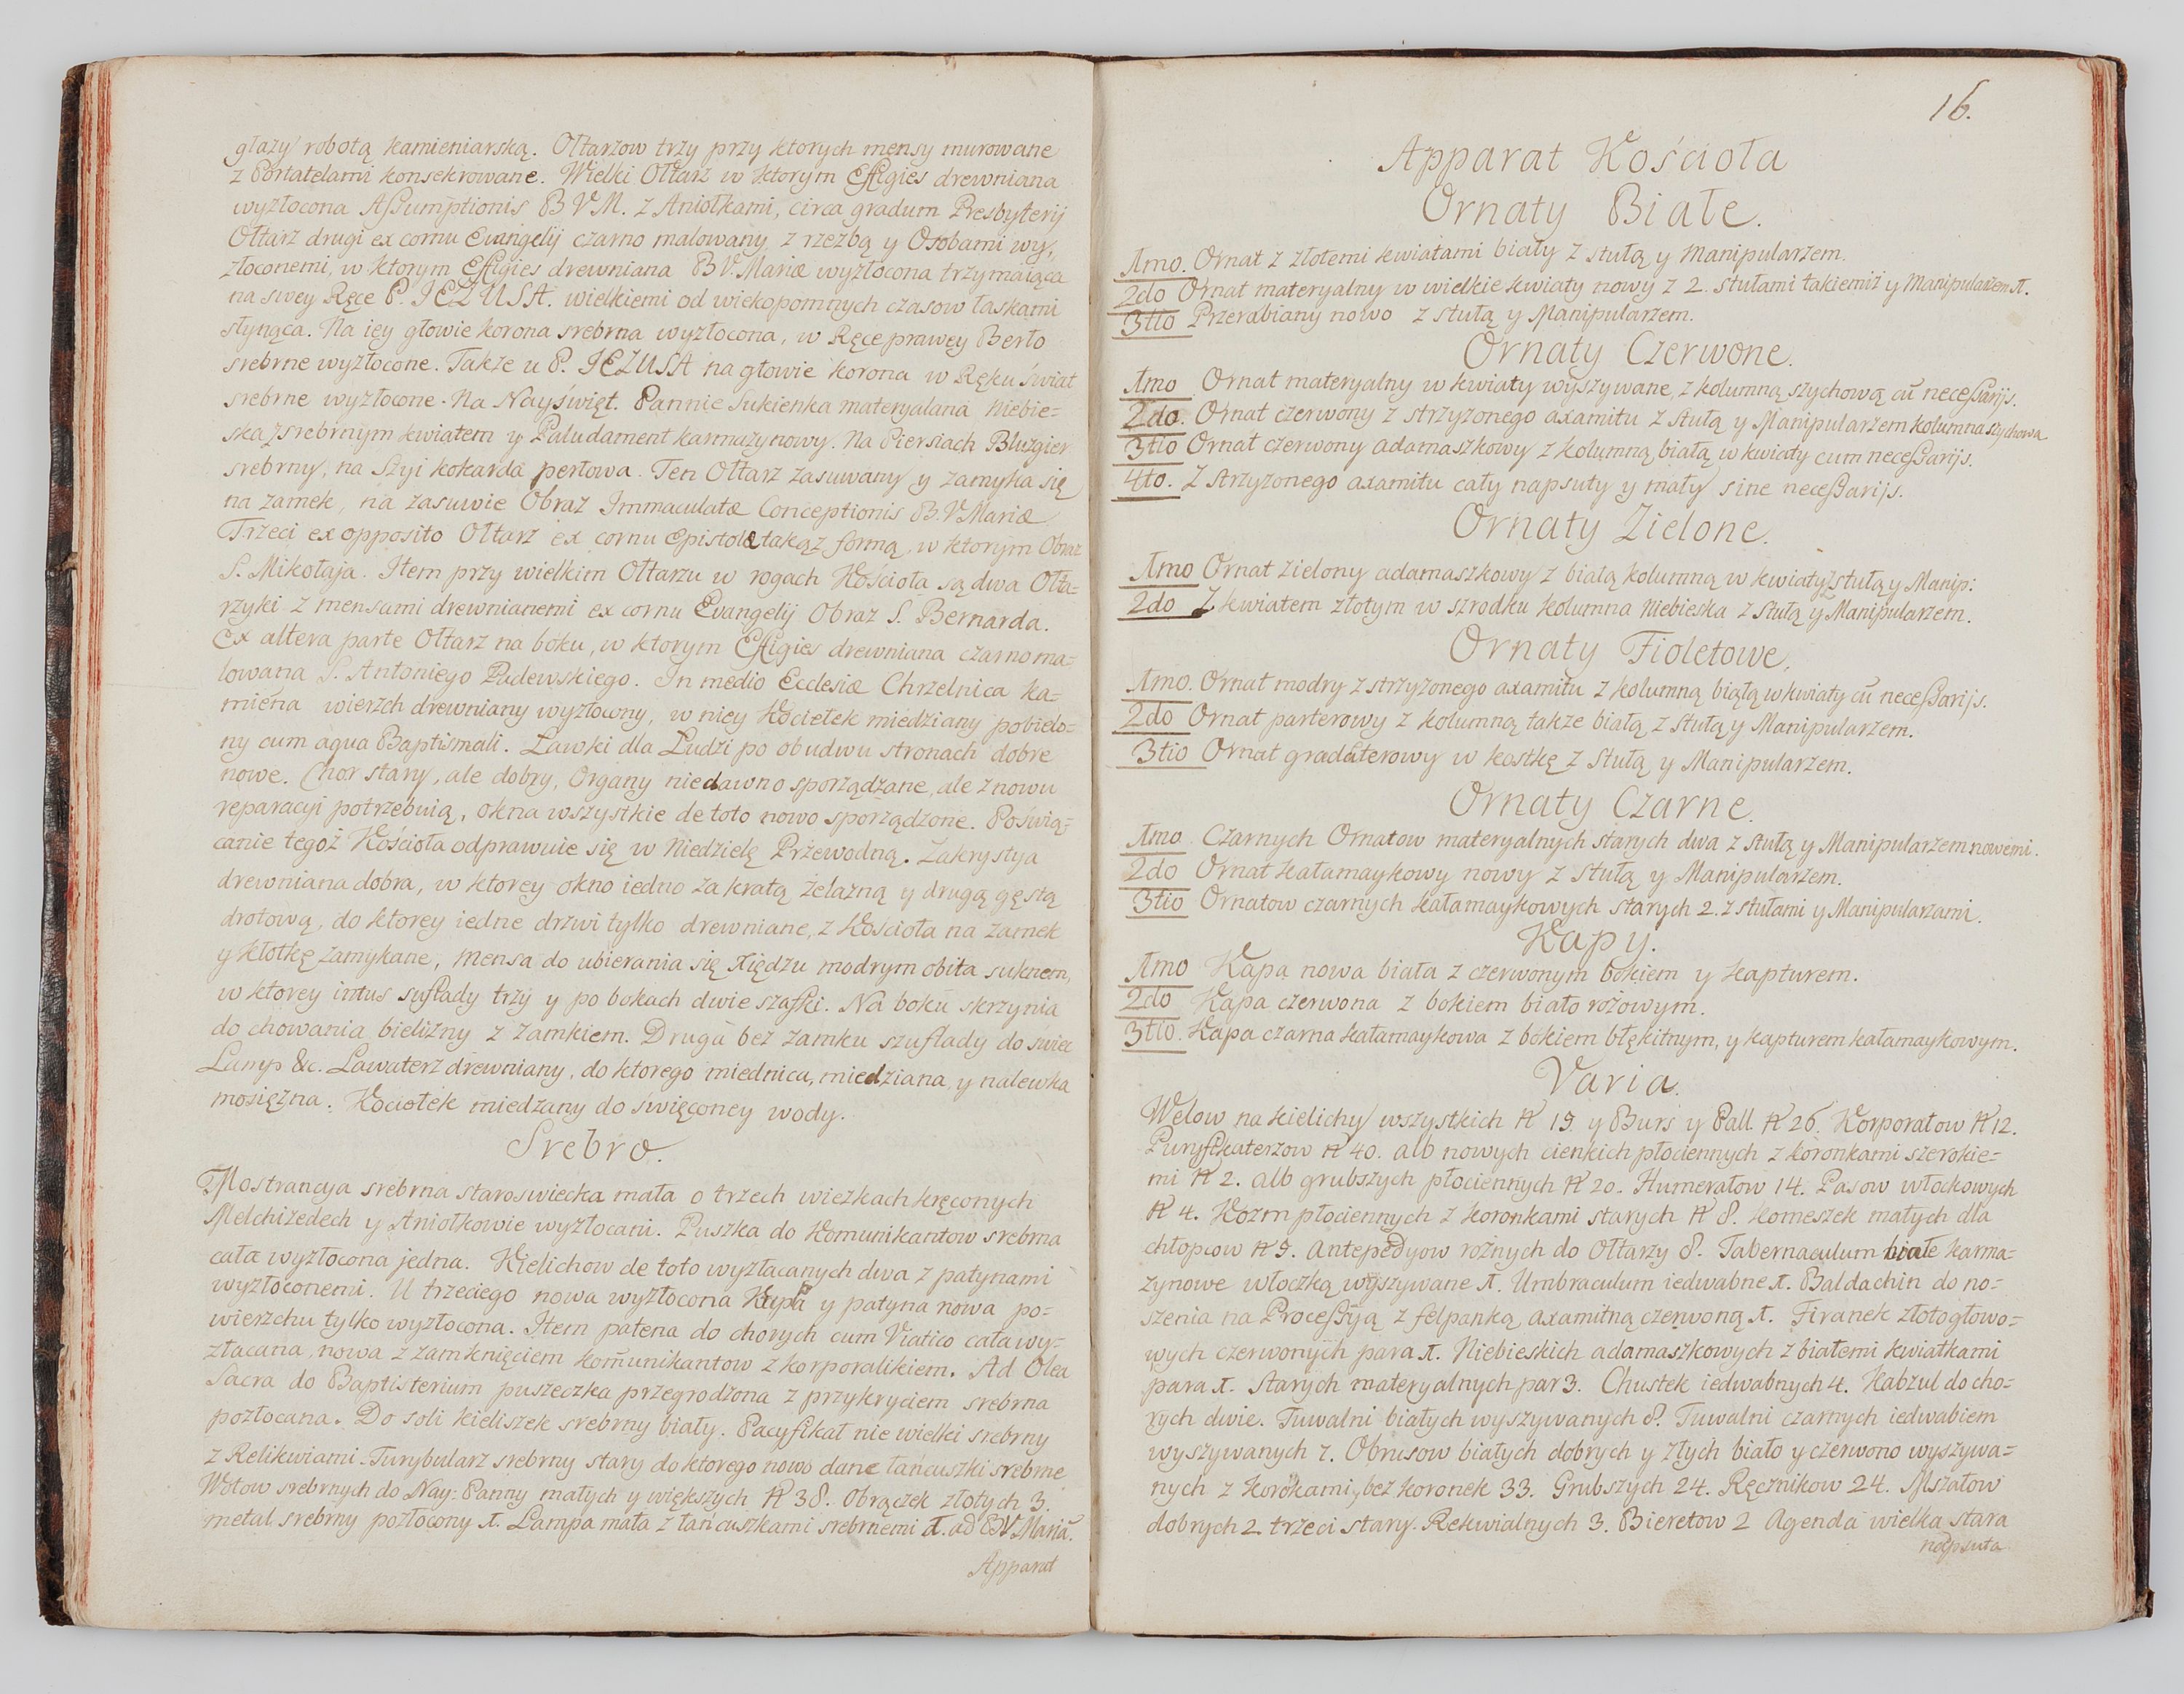 głazy robotą kamieniarską. Ołtarzow trzy przy ktorych mensy murowane
z Portatelami konsekrowane. Wielki Ołtarz w ktorym Effigies drewniana
wyzłocona Assumptionis B V M. z Aniołkami, circa gradum Presbyterij
Ołtarz drugi ex cornu Evangelij czarno malowany z rzezbą y Osobami wy,
złoconemi, w ktorym Effigies drewniana B V. Mariæ wyzłocona trzymaiąca
na swey Ręce P. IEZUSA. wielkiemi od wiekopomnych czasow łaskami
słynąca. Na iey głowie korona srebrna wyzłocona, w Ręce prawey Berło
srebrne wyzłocone. Takze u P. IEZUSA na głowie korona w Ręku świat
srebrne wyzłocone. Na Nayświęt. Pannie sukienka materyalana niebie=
ska z srebrnym kwiatem y Paludament karmazynowy. Na Piersiach Bluzgier
srebrny, na Szyi kokarda perłowa. Ten Ołtarz zasuwany y zamyka się
na zamek, na zasuwie Obraz Immaculatæ Conceptionis B. V Mariæ
Trzeci ex opposito Ołtarz ex cornu Epistolæ takąz formą, w ktorym Obraz
S. Mikołaja. Item przy wielkim Ołtarzu w rogach Kościoła są dwa Ołta=
rzyki z mensami drewnianemi ex cornu Evangelij Obraz S. Bernarda.
Ex altera parte Ołtarz na boku, w ktorym Effigies drewniana czarno ma=
lowana S. Antoniego Padewskiego. In medio Ecclesiæ Chrzelnica ka=
miena wierzch drewniany wyzłocony, w niey Kociełek miedziany pobielo=
ny cum aqua Baptismali. Ławki dla Ludzi po obudwu stronach dobre
nowe. Chor stary, ale dobry, Organy niedawno sporządzane, ale znowu
reparacyi potrzebuią, okna wszystkie de toto nowo sporządzone. Poświą=
canie tegoż Kościoła odprawuie się w Niedzielę Przewodną. Zakrystya
drewniana dobra, w ktorey okno iedno za kratą żelazną y drugą gęstą
drotową, do ktorey iedne drzwi tylko drewniane, z Kościoła na zamek
y kłotkę zamykane, mensa do ubierania się Xiędzu modrym obita suknem,
w ktorey intus suflady trzy y po bokach dwie szafki. Na boku skrzynia
do chowania bielizny z zamkiem. Druga bez zamku szuflady do świec
Lamp &c. Lawaterz drewniany, do ktorego miednica, miedziana, y nalewka
mosięzna. Kociołek miedzany do święconey wody.
Srebro.
Mostrancya srebrna staroswiecka mała o trzech wiezkach kręconych
Melchizedech y Aniołkowie wyzłocani. Puszka do Komunikantow srebrna
cała wyzłocona jedna. Kielichow de toto wyzłacanych dwa z patynami
wyzłoconemi. U trzeciego nowa wyzłocona Kupa y patyna nowa po=
wierzchu tylko wyzłocona. Item patena do chorych cum Viatico cała wy=
złacana, nowa z zamknięciem komunikantow z korporalikiem. Ad Olea
Sacra do Baptisterium puszeczka przegrodzona z przykryciem srebrna
pozłocana. Do soli kieliszek srebrny biały. Pacyfikał nie wielki srebrny
z Relikwiami. Turybularz srebrny stary do ktorego nowo dane łancuszki srebrne
Wotow srebrnych do Nay: Panny małych y większych N 38. Obrączek złotych 3.
metal srebrny pozłocony 1. Lampa mała z łańcuszkami srebrnemi 1. ad B V Mariā.
Apparat
16.
Apparat Kościoła
Ornaty Białe.
1mo. Ornat z złotemi kwiatami biały z stułą y Manipularzem.
2do Ornat materyalny w wielkie kwiaty nowy z 2. stułami takiemiż y Manipularzem 1.
3tio Przerabiany nowo z stułą y Manipularzem.
Ornaty Czerwone.
1mo Ornat materyalny w kwiaty wyszywane, z kolumną szychową cū necessarijs.
2do. Ornat czerwony z strzyzonego axamitu z stułą y Manipularzem kolumna szychowa
3tio Ornat czerwony adamaszkowy z kolumną białą w kwiaty cum necessarijs.
4to. Z strzyzonego axamitu cały napsuty y mały sine necessarijs.
Ornaty Zielone.
1mo Ornat zielony adamaszkowy z białą kolumną w kwiaty z stułą y Manip:
2do Z kwiatem złotym w szrodku kolumna niebieska z stułą y Manipularzem.
Ornaty Fioletowe.
1mo. Ornat modry z strzyzonego axamitu z kolumną białą w kwiaty cū necessarijs.
2do Ornat parterowy z kolumną takze białą z stułą y Manipularzem.
3tio Ornat gradaterowy w kostkę z stułą y Manipularzem.
Ornaty Czarne.
1mo Czarnych Ornatow materyalnych starych dwa z stułą y Manipularzem nowemi.
2do Ornat kałamaykowy nowy z stułą y Manipularzem.
3tio Ornatow czarnych kałamaykowych starych 2. z stułami y Manipularzami.
Kapy.
1mo Kapa nowa biała z czerwonym bokiem y kapturem.
2do Kapa czerwona z bokiem biało rożowym.
3tio. Kapa czarna kałamaykowa z bokiem błękitnym, y kapturem kałamaykowym.
Varia.
Welow na kielichy wszystkich N 19 y Burs y Pall. N 26. Korporałow N 12.
Puryfikaterzow N 40. alb nowych cienkich płociennych z koronkami szerokie=
mi N 2. alb grubszych płociennych N 20. Humerałow 14. Pasow włockowych
N 4. Kozm płociennych z koronkami starych N 8. komeszek małych dla
chłopcow N 9. Antepedyow rożnych do Ołtarzy 8. Tabernaculum białe karma=
zynowe włoczką wyszywane 1. Umbraculum iedwabne 1. Baldachin do no=
szenia na Processyją z felpanką axamitną czerwoną 1. Firanek złotogłowo=
wych czerwonych para 1. Niebieskich adamaszkowych z białemi kwiatkami
para 1. Starych materyalnych par 3. Chustek iedwabnych 4. Kabzul do cho=
rych dwie. Tuwalni białych wyszywanych 8. Tuwalni czarnych iedwabiem
wyszywanych 7. Obrusow białych dobrych y złych biało y czerwono wyszywa=
nych z koronkami, y bez koronek 33. Grubszych 24. Ręcznikow 24. Mszałow
dobrych 2 trzeci stary. Rekwialnych 3. Bieretow 2 Agenda wielka stara
napsuta